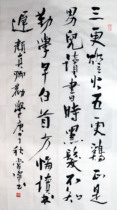 三更燈火五更鷄正是
男兒讀書時黑髮不知
勤學早白首方悔讀書
遲 顏真卿勸學